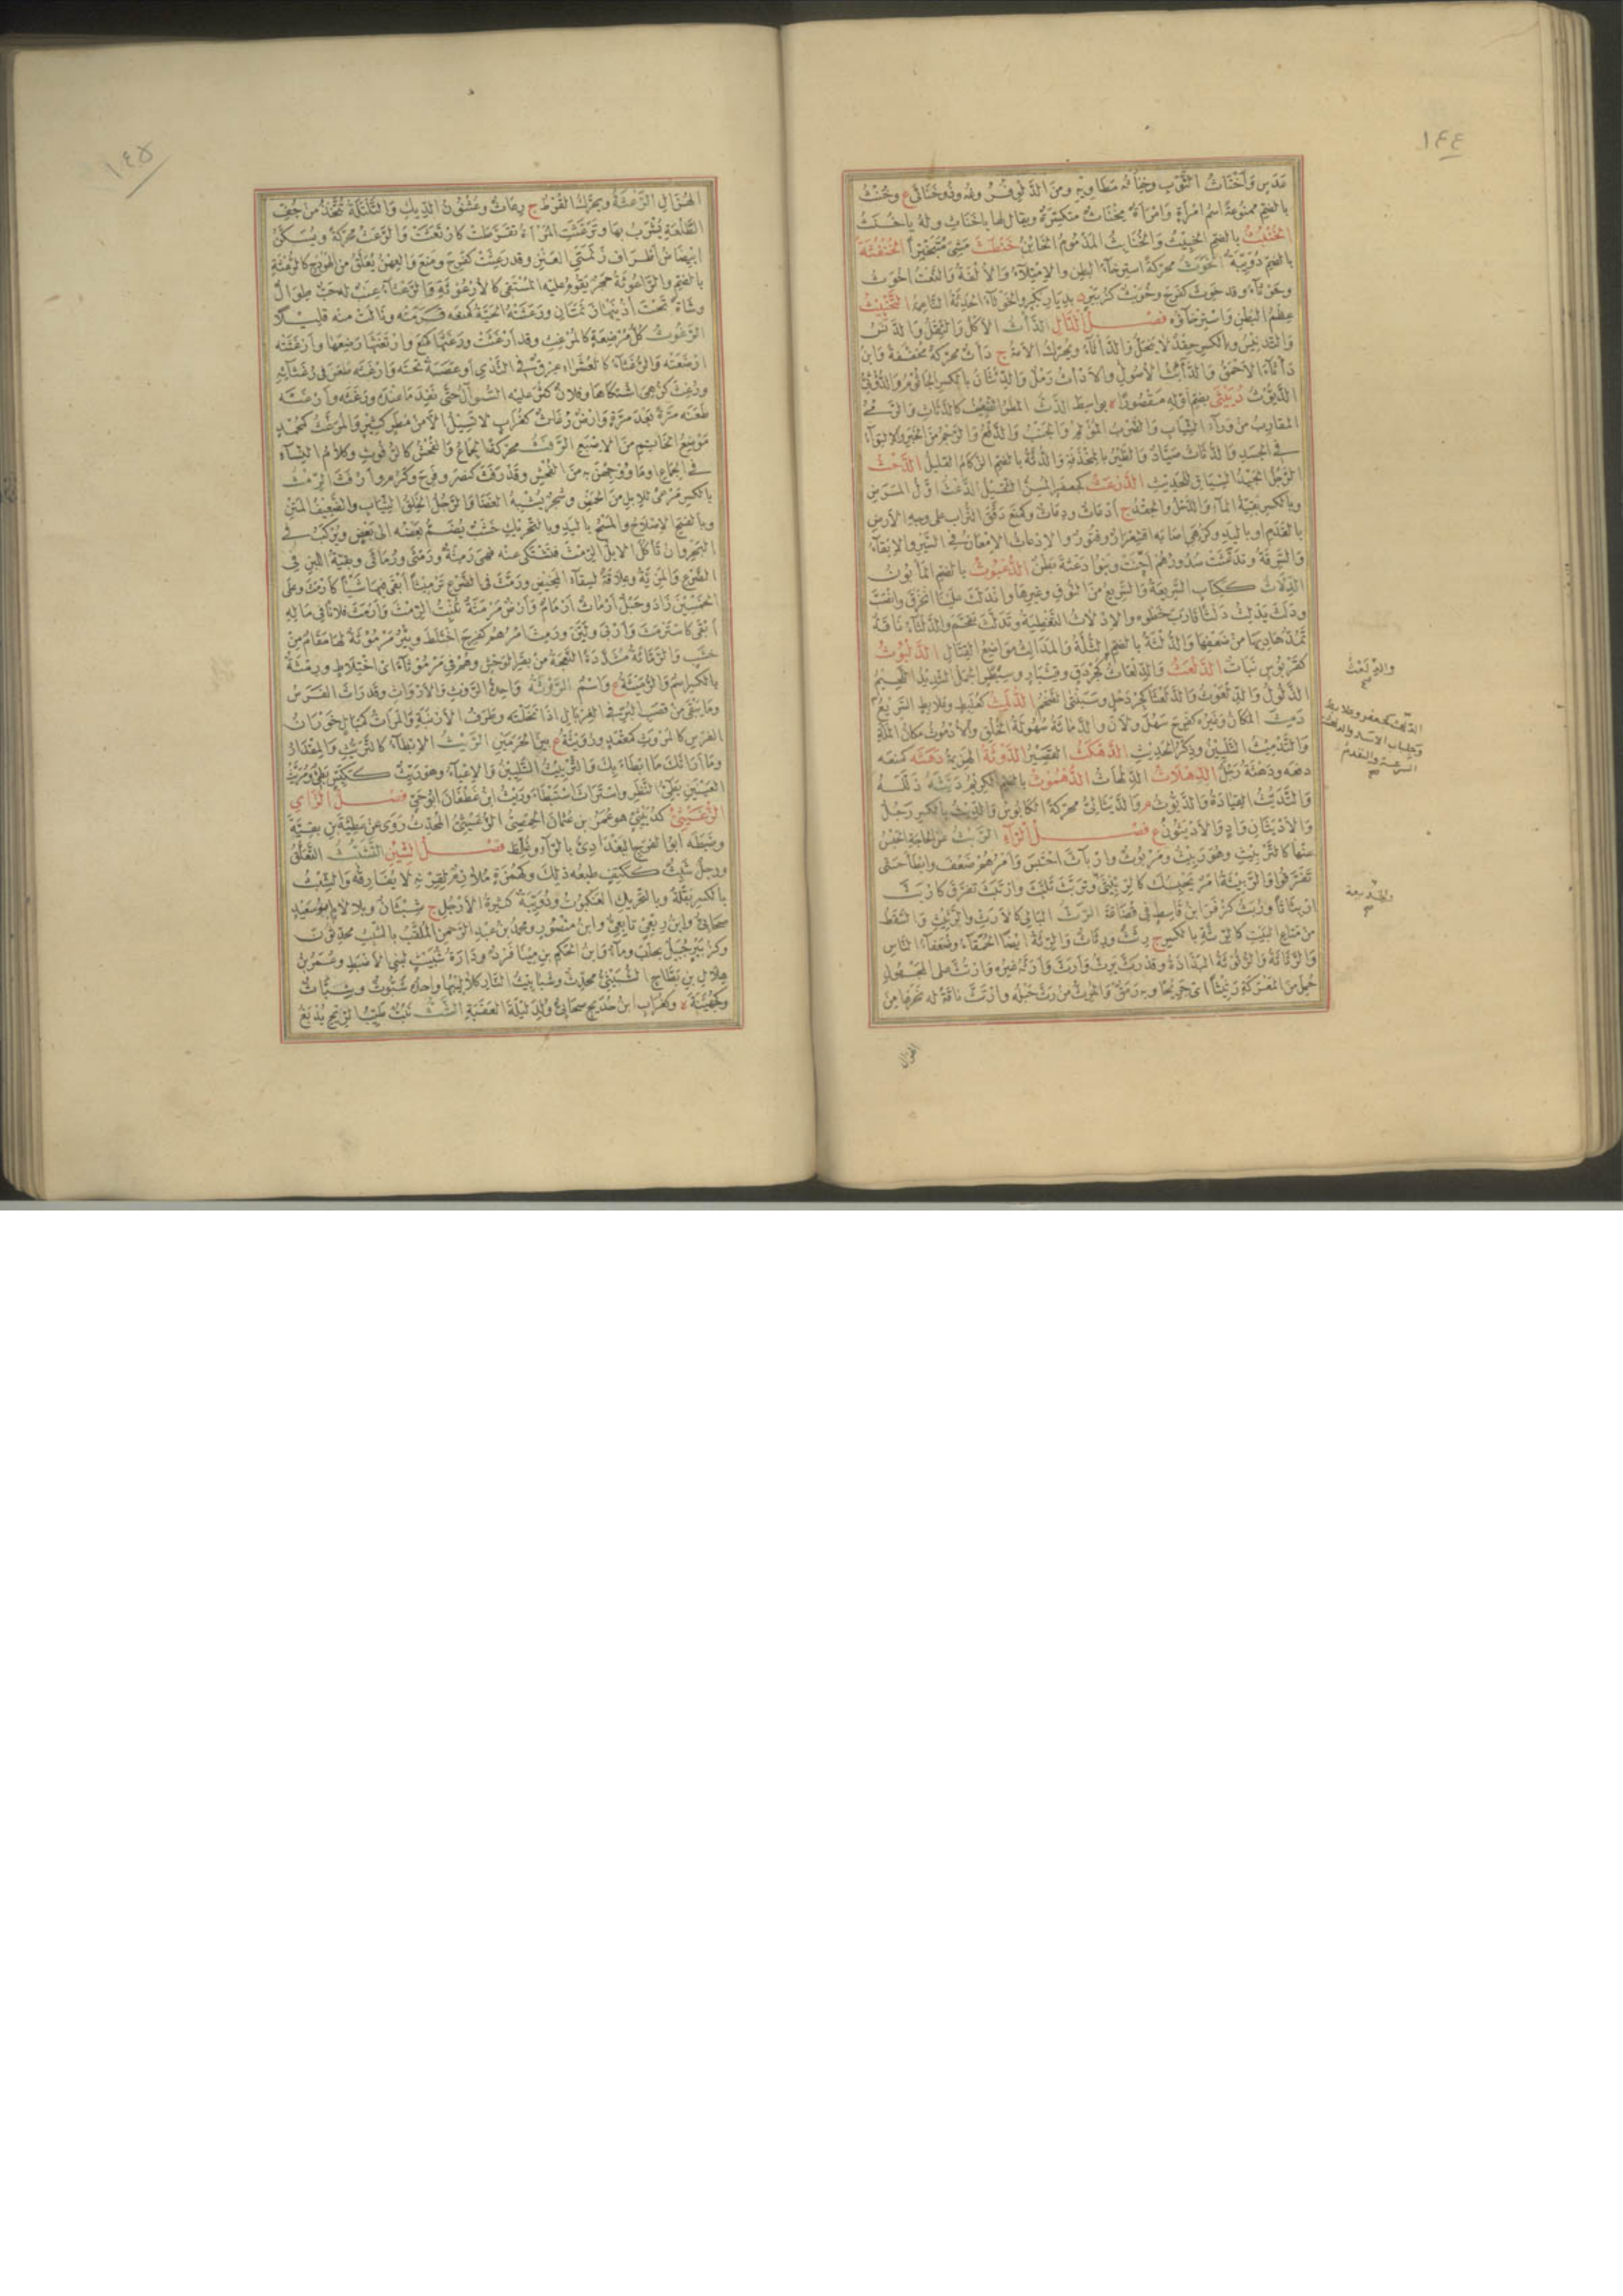 ١٤٤
عدس وأخناث الثوب وخناثه مطاويه ومن الدلو فروغه وذو خناثى ع وخنث
بالضم ممنوعة اسم امرأة وامرأة مخناث متكسرة ويقال لها يا خناث وله يا خنث
الخنبث بالضم الخبيث والخنابث المذموم الخائن خنطث مشى متبخترا الخنفثة
بالضم دويبة الخوث محركة استرخاء البطن والامتلاء والألفة والنعت أخوث
وخوثاء وقد خوث كفرح وخويث كزبير د بديار بكر والخوثاء الحدثة الناعمة التخييث
عظم البطن واسترخاؤه فصل الدال الدأث الأكل والثقل والدنس
والتدنيس وبالكسر حقد لا ينحل والدأثاء ويحرك الأمة ج دآث محركة مخففة وابن
دأثاء الأحمق والدآئث الأصول والأدآث رمل والدئثان بالكسر الجاثوم والدؤثي
الديوث دبيثى بضم أوله مقصورا ة بواسط الدث المطر الضعيف كالدثاث والرمي
المقارب من وراء الثياب والضرب المؤلم والجنب والدفع والرجم من الخبر والالتواء
في الجسد والدثاث صياد والطير بالمخذفة والدثة بالضم الزكام القليل الدحث
الرجل الجيد السياق للحديث الدرعث كجعفر المسن الثقيل الدعث أول المرض
وبالكسر بقية الماء والذحل والحقد ج أدعاث ودعاث وكمنع دقق التراب على وجه الأرض
بالقدم أو باليد وكزهي أصابه اقشعرار وفتور والإدعاث الإمعان في السير والإبقاء
والسرقة وتدعثت صدورهم أحنت وبنو دعثة بطن الدعبوث بالضم المأبون
الدلاث ككتاب السريعة والسريع من النوق وغيرها واندلث علينا انخرق وانصب
ودلث يدلث دلثا قارب خطوه والادلاث التغطية وتدلث تقحم والدلثاء ناقة
تمد هاديها من ضعفها والدلثة بالضم الثلة والمدالث مواضع القتال الدلبوث
كقربوس نبات الدلعث والدلعاث كجردق وقنبار وسبطر الجمل الشديد اللحيم
الذلول والدلعوث والدلعثا كجردحل وسبنتى الضخم الدلمث كعلبط وعلابط السريع
دمث المكان وغيره كفرح سهل ولان والدماثة سهولة الخلق والأدموث مكان الملة
والتدميث التليين وذكر الحديث الدهكث القصير الدوثة الهزيمة دهثه كمنعه
دفعه ودهثة رجل الدهلاث الدلهاث الدهموث بالضم الكريم ديثه ذلله
والتديث القيادة والديوث م والديثاني محركة الكابوس والديث بالكسر رجل
والأديثان واد والأديثون ع فصل الراء الربث عن الحاجة الحبس
عنها كالتربيث وهو ربيث ومربوث واربأث احتبس وأمرهم ضعف وأبطأ حتى
تفرقوا والربيثة أمر يحبسك كالربيثى وتربث تلبث وارتبث تفرق كاربث
اربثاثا وربث كزفر ابن قاسط في قضاعة الرث البالي كالأرث والرثيث والسقط
من متاع البيت كالرثة بالكسر ج رثث ورثاث والرثة أيضا الحمقاء وضعفاء الناس
والرثاثة والرثوثة البذاذة وقد رث يرث وأرث وأرثه غيره وارتث على المجهول
حمل من المعركة رثيثا أي جريحا وبه رمق والمرث من رث حبله وارتث ناقة له نحرها من
والدلعث
الدلهث كجعفر وعلابط
وجلباب الأسد والدلهثة
السرعة والتقدم
الهزال
١٤٥
الهزال الرعثة ويحرك القرط ج رعاث وعثنون الديك والتلتلة تتخذ من جف
الطلعة يشرب بها وترعثت المرأة تقرطت كارتعثت والرعث محركة ويسكن
ابيضاض أطراف زنمتي العنز وقد رعثت كفرح ومنع والعهن يعلق من الهودج كالرعثة
بالضم والراعوثة حجر يقوم عليه المستقي كالأرعوثة والرعثاء عنب له حب طوال
وشاة تحت أذنيها زنمتان ورعثته الحية كمنعه قرمته ونالت منه قليلا
الرغوث كل مرضعة كالمرغث وقد أرغثت ورغثها كمنع وارتغثها رضعها وأرغثته
أرضعته والرغثاء كالعشراء عرق في الثدي أو عصبة تحته وأرغثه طعن في رغثائه
ورغثت كزهي اشتكاها وفلان كثر عليه السؤال حتى نفد ما عنده ورغثه وأرغثه
طعنه مرة بعد مرة وأرض رغاث كغراب لا تسيل إلا من مطر كثير والمرغث كمحمد
موضع الخاتم من الإصبع الرفث محركة الجماع والفحش كالرفوث وكلام النساء
في الجماع أو ما ووجهن به من الفحش وقد رفث كنصر وفرح وكرم وأرفث الرمث
بالكسر مرعى للإبل من الحمض وشجر يشبه الغضا والرجل الخلق الثياب والضعيف المتن
وبالفتح الإصلاح والمسح باليد وبالتحريك خشب يضم بعضه إلى بعض ويركب في
البحر وأن تأكل الإبل الرمث فتشتكي عنه فهي رمثة ورمثى ورماثى وبقية اللبن في
الضرع والمزية وعلاقة لسقاء المخيض ورمث في الضرع ترميثا أبقى بها شيئا كأرمث وعلى
الخمسين زاد وحبل أرماث أرمام وأرض مرمثة تنبت الرمث وأرمث فلانا في ماله
أبقى كاسترمث وأربى ولين ورمث أمرهم كفرح اختلط وبئر مرموثة لها مقام من
خشب والرماثة مشددة النعجة من بقر الوحش وهم في مرموثاء أي اختلاط ورمثة
بالكسر اسم والرميثة ع واسم الروثة واحدة الروث والأرواث وقد راث الفرس
وما يبقى من قصب البر في الغربال إذا نخلته وطرف الأرنبة والمراث كمقال خوران
الفرس كالمروث كمقعد ورويثة ع بين الحرمين الريث الإبطاء كالتريث والمقدار
وما أراثك ما أبطأ بك والتريث التليين والإعياء وهو ريث ككيس بطيء ومريث
العينين بطيء النظر واستراث استبطأ وريث ابن غطفان أبو حي فصل الزاي
الزغيبثي هو عمر بن عثمان الحمصي المحدث روى عن عطية بن بقية
وضبطه أبو الفرج البغدادي بالراء وغلط فصل الشين التشبث التعلق
ورجل شبث ككتف طبعه ذلك وكهمزة ملازم لقرنه لا يفارقه والشبث
بالكسر بقلة وبالتحريك العنكبوت ودويبة كثيرة الأرجل ج شبثان وبلا لام ابن سعيد
صحابي وابن ربعي تابعي وابن منصور ومحمد بن عبد الرحمن الملقب بالشبث محدثون
وكزبير جبل بحلب وماء وابن الحكم بن مينا فرد ودارة شبيث لبني الأضبط وعمر بن
هلال بن بطاح الشبيثي محدث وشبابيث النار كلاليبها واحده شبوث وشباث
وكجهينة ة وكغراب ابن حديج صحابي ولد ليلة العقبة الشث نبت طيب الريح يدبغ